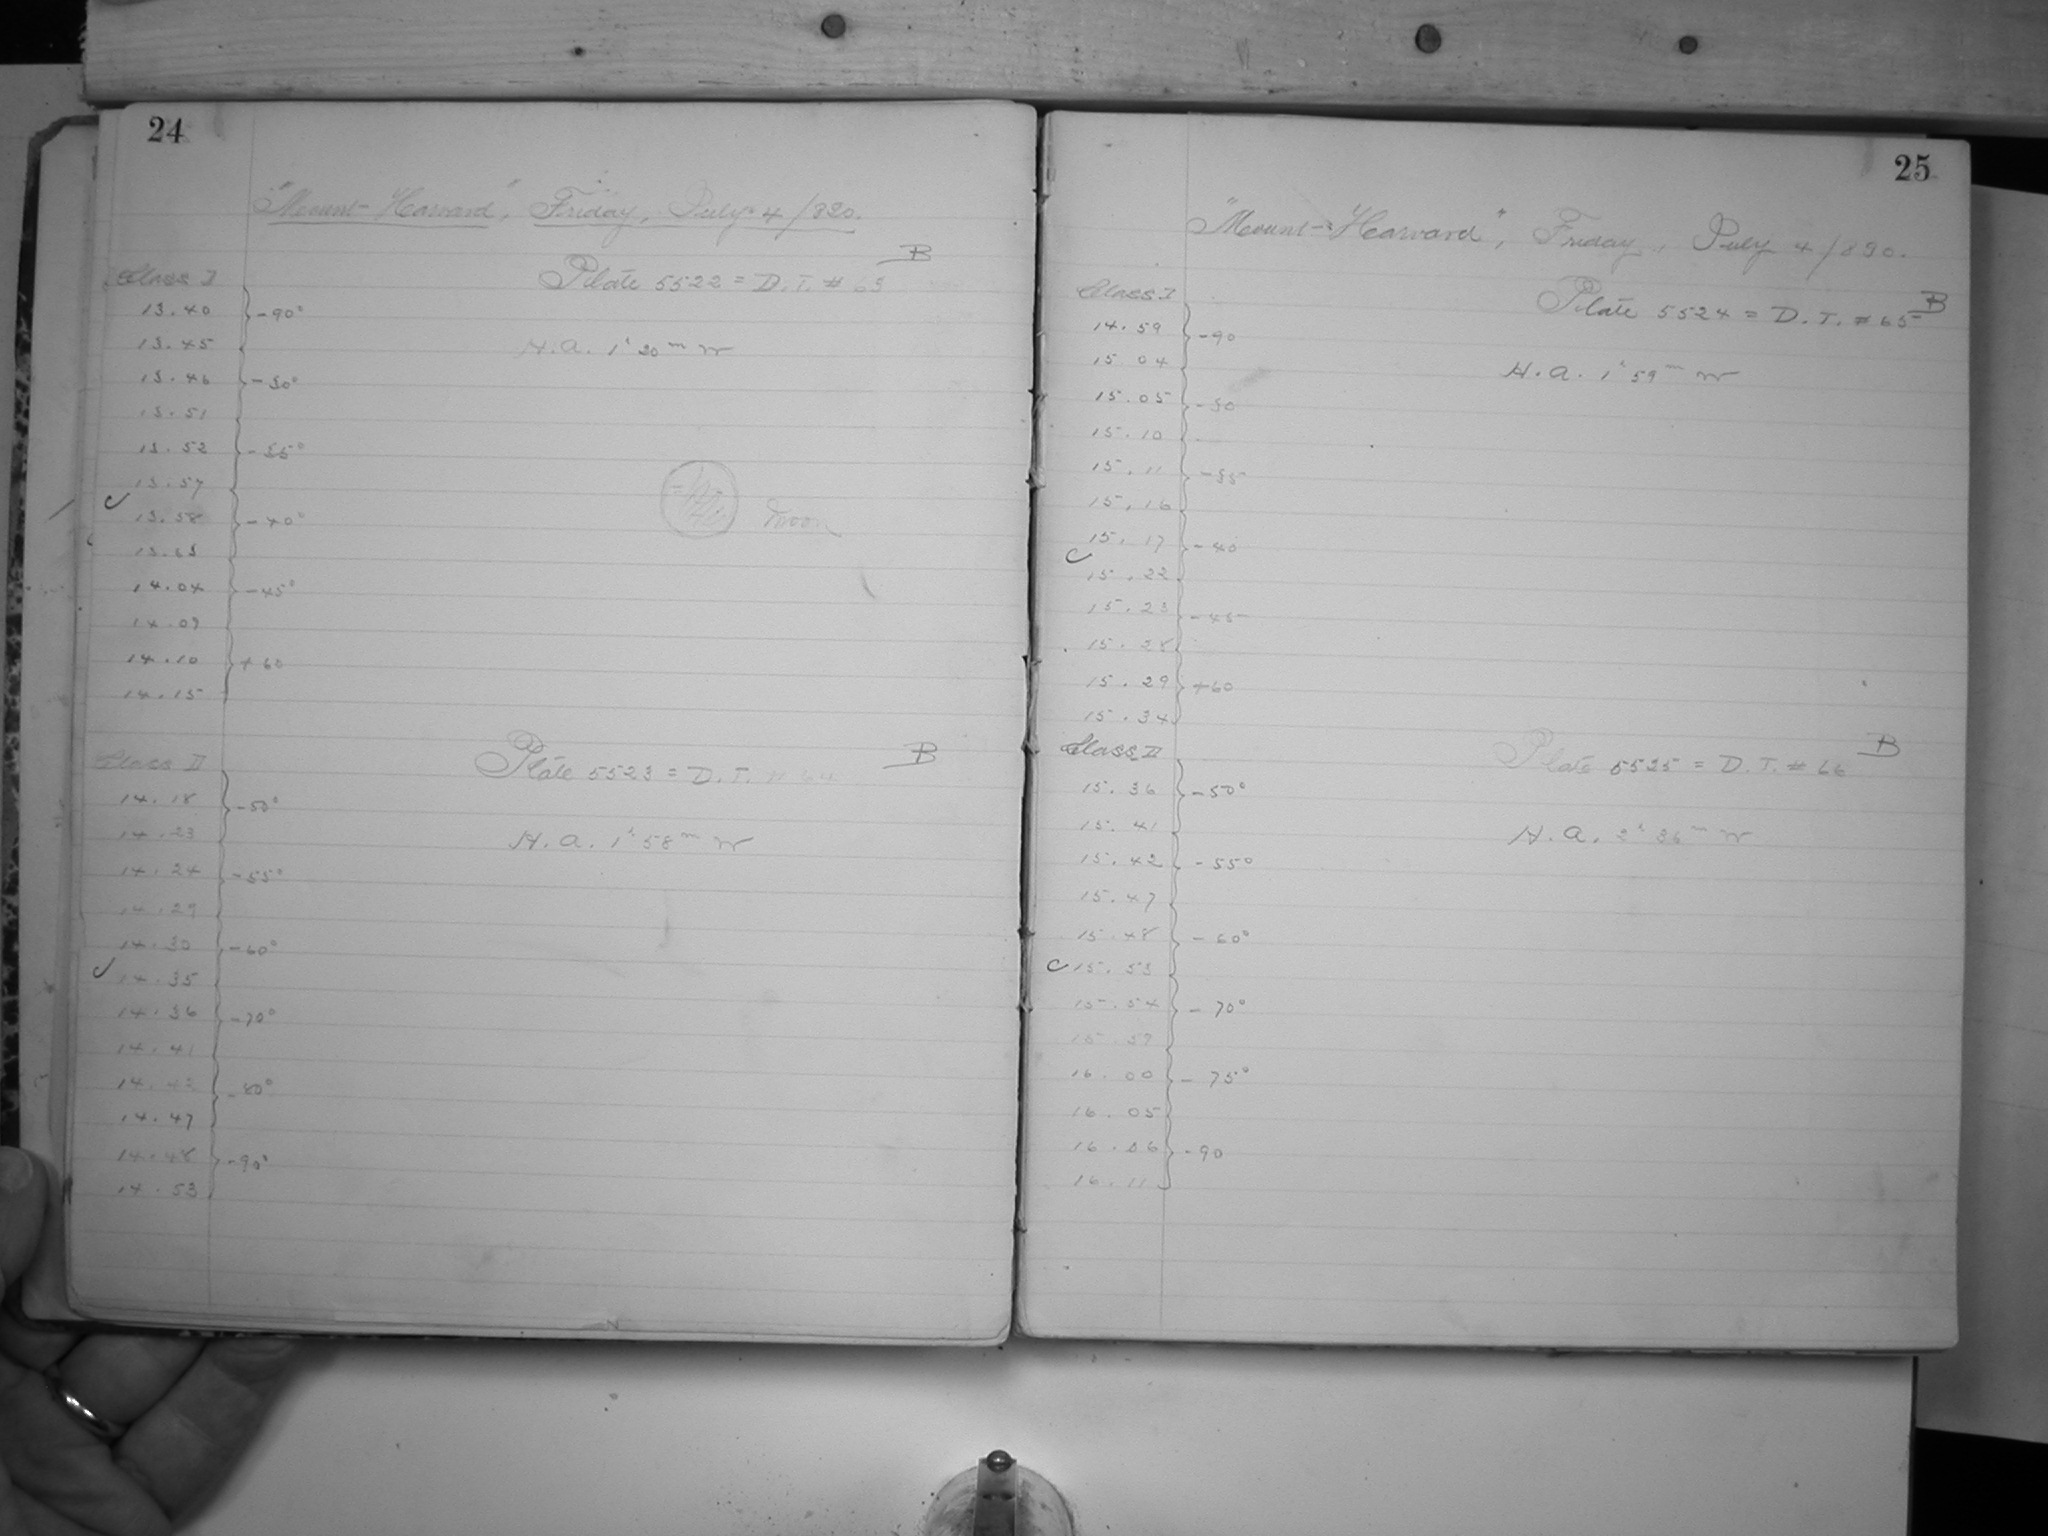 24
"Mount-Harvard", Friday, July 4/890.
B
Class I
Plate 5522 = D.T. # 63
13.40 -90°
13.45
H.A. 1h 20m W
13.46 -30°
13.51
13.52 -35°
13.57
13.58 -40°
13.63
Moon
14.04 -45°
14.09
14.10 +60
14.15
Class II
Plate 5523 = D.T. # 64
B
14.18 -50°
14.23
H.A. 1h 58m W
14.24 -55°
14.29
14.30 -60°
14.35
14.36 -70°
14.41
14.42 -80°
14.47
14.48 -90°
14.53
25
"Mount-Harvard", Friday, July 4/890.
Class I
Plate 5524 = D.T. # 65
B
14.59 -90
15.04
H.A. 1h 59m W
15.05 -30
15.10
15.11 -35
15.16
15.17 -40
15.22
15.23 -45
15.28
15.29 +60
15.34
Class II
Plate 5525 = D.T. # 66
B
15.36 -50°
15.41
H.A. 2h 36m W
15.42 -55°
15.47
15.48 -60°
15.53
15.54 -70°
15.59
16.00 -75°
16.05
16.06 -90
16.11